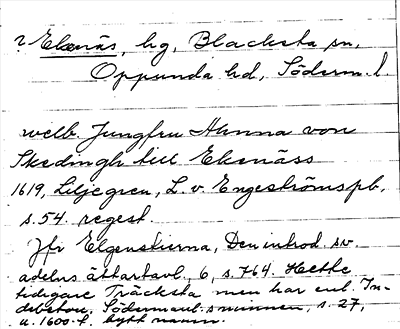 ? Ekenäs, hg, Blacksta sn,
Oppunda hd, Söderm. l.
welb. Jungfru Hanna von
Skedingh till Ekenäss
1619, Liljegren, L. v. Engeströms pb.
s. 54. regest.
Jfr Elgenstierna, Den introd. sv
adelns ättartavl. 6, s. 764. Hette
tidigare Träcksta men har enl. In-
debetou, Södermanl. s minnen, s. 27,
u. 1600-t. bytt namn.